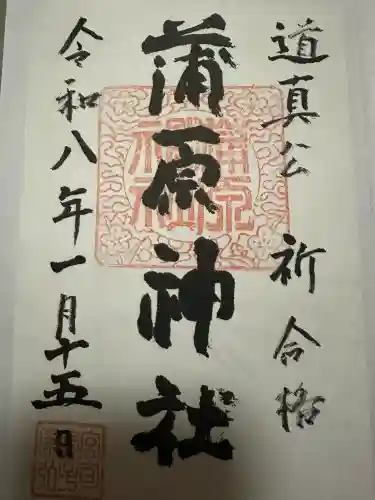 道真公 祈合格
蒲原神社
令和八年一月十五日